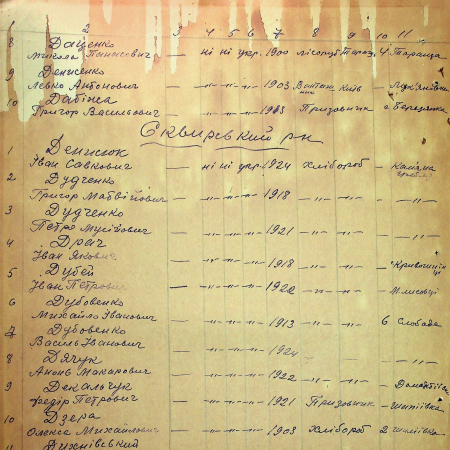 1 2 3 4 5 6 7 8 9 10 11
8 Даценко
Микола Панасович — ні ні укр. 1900 4 Тараща
9 Денисенко
Левко Антонович — -"- -"- -"- 1903 Київ —
10 Дабіжа
Григор Васильович — -"- -"- -"- 1903 Призовник Березянка
Сквирський р-н
1 Денисюк
Іван Савкович — ні ні укр. 1924 Хлібороб — —
2 Дудченко
Григор Матвійович — -"- -"- -"- 1918 -"- -"- — -"-
3 Дудченко
Петро Мусійович — -"- -"- -"- 1921 -"- -"- — -"-
4 Драч
Іван Якович — -"- -"- -"- 1918 -"- -"- —
5 Дубей
Іван Петрович — -"- -"- -"- 1922 -"- -"- —
6 Дубовенко
Михайло Іванович — -"- -"- -"- 1913 -"- -"- 6 Слобода
7 Дубовенко
Василь Іванович — -"- -"- -"- 1924 — -"-
8 Дячук
Макарович — -"- -"- -"- 1922 -"- -"- —
9 Декальчук
Федір Петрович — -"- -"- -"- 1921 Призовник — Шапіївка
10 Дзера
Олекса Михайлович — -"- -"- -"- 1903 Хлібороб 2 Шапіївка
11